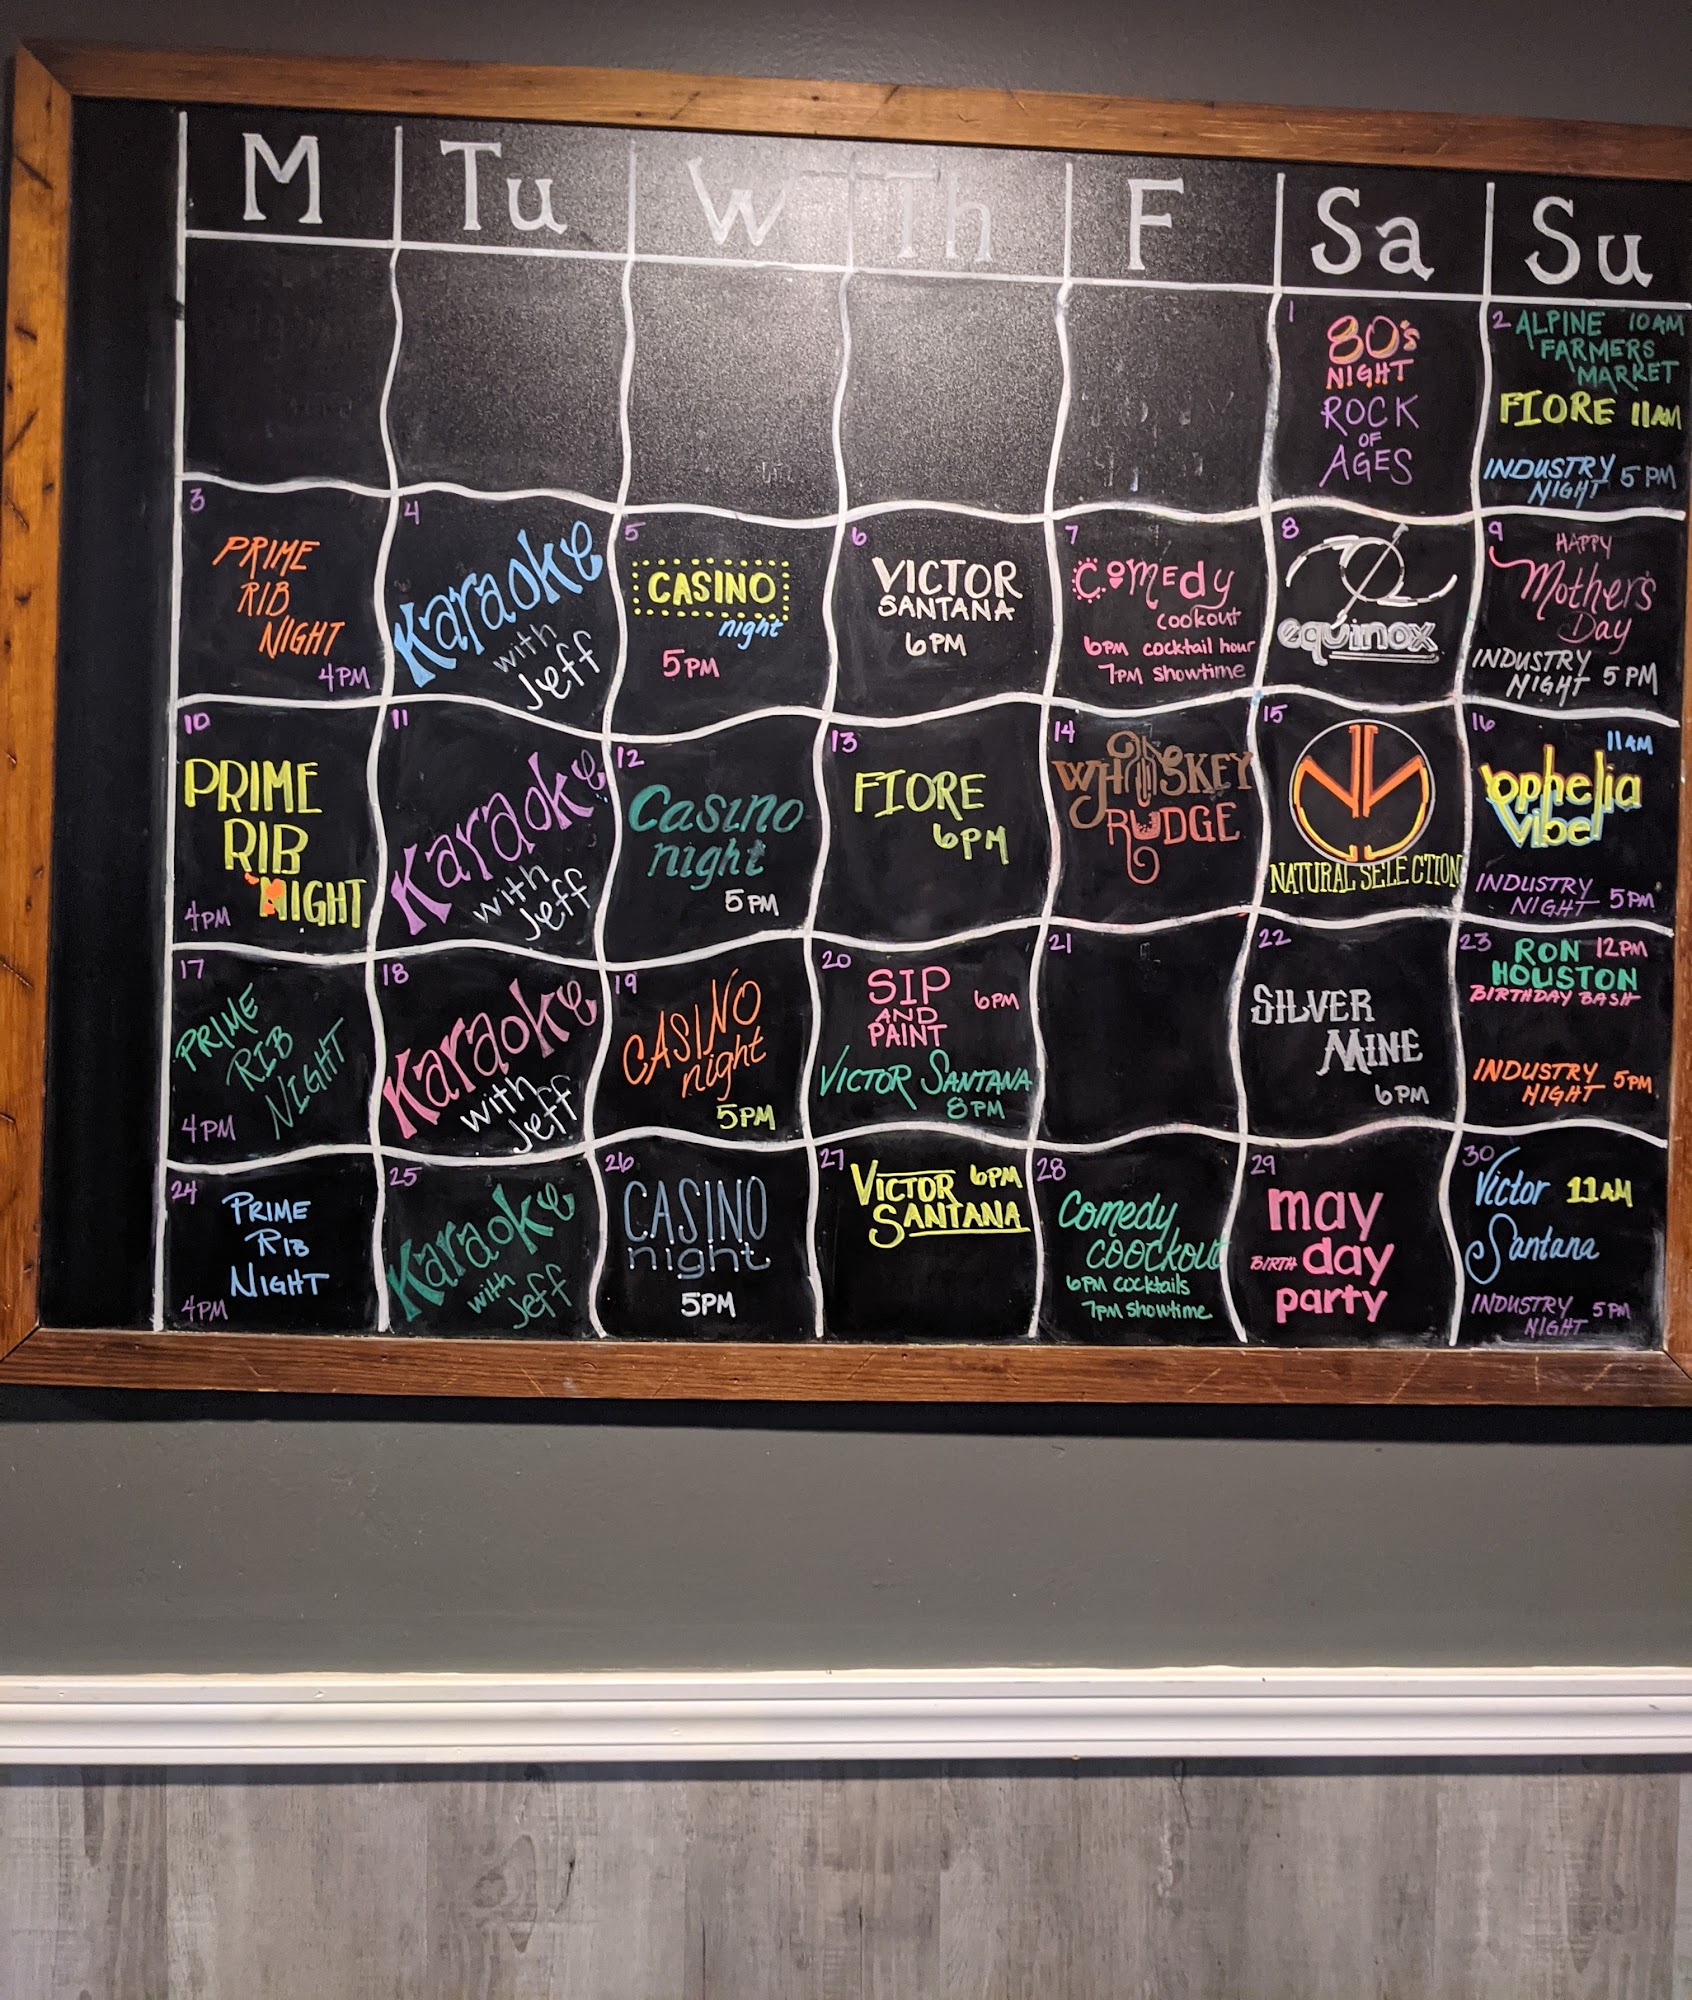 M Tu W Th F Sa Su
1
80's
NIGHT
ROCK
OF
AGES
2 ALPINE 10AM
FARMERS
MARKET
FIORE 11AM
INDUSTRY
NIGHT 5PM
3
PRIME
RIB
NIGHT
4PM
4
Karaoke
with
Jeff
5
CASINO
night
5PM
6
VICTOR
SANTANA
6PM
7
Comedy
cookout
6PM cocktail hour
7PM showtime
8
equinox
9
HAPPY
Mother's
Day
INDUSTRY
NIGHT 5PM
10
PRIME
RIB
NIGHT
4PM
11
Karaoke
with
Jeff
12
Casino
night
5PM
13
FIORE
6PM
14
WHISKEY
RUDGE
15
NATURAL SELECTION
16
11AM
ophelia
vibe
INDUSTRY
NIGHT 5PM
17
PRIME
RIB
NIGHT
4PM
18
Karaoke
with
Jeff
19
CASINO
night
5PM
20
SIP
AND 6PM
PAINT
VICTOR SANTANA
8PM
21
22
SILVER
MINE
6PM
23
RON 12PM
HOUSTON
BIRTHDAY BASH
INDUSTRY
NIGHT 5PM
24
PRIME
RIB
NIGHT
4PM
25
Karaoke
with
Jeff
26
CASINO
night
5PM
27
VICTOR 6PM
SANTANA
28
Comedy
COOCKOUT
6PM COCKTAILS
7PM SHOWTIME
29
may
BIRTH day
party
30
Victor 11AM
Santana
INDUSTRY
NIGHT 5PM